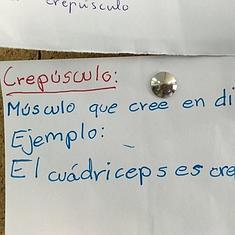 crepúsculo
Crepúsculo:
Músculo que cree en di
Ejemplo:
El cuádriceps es cre